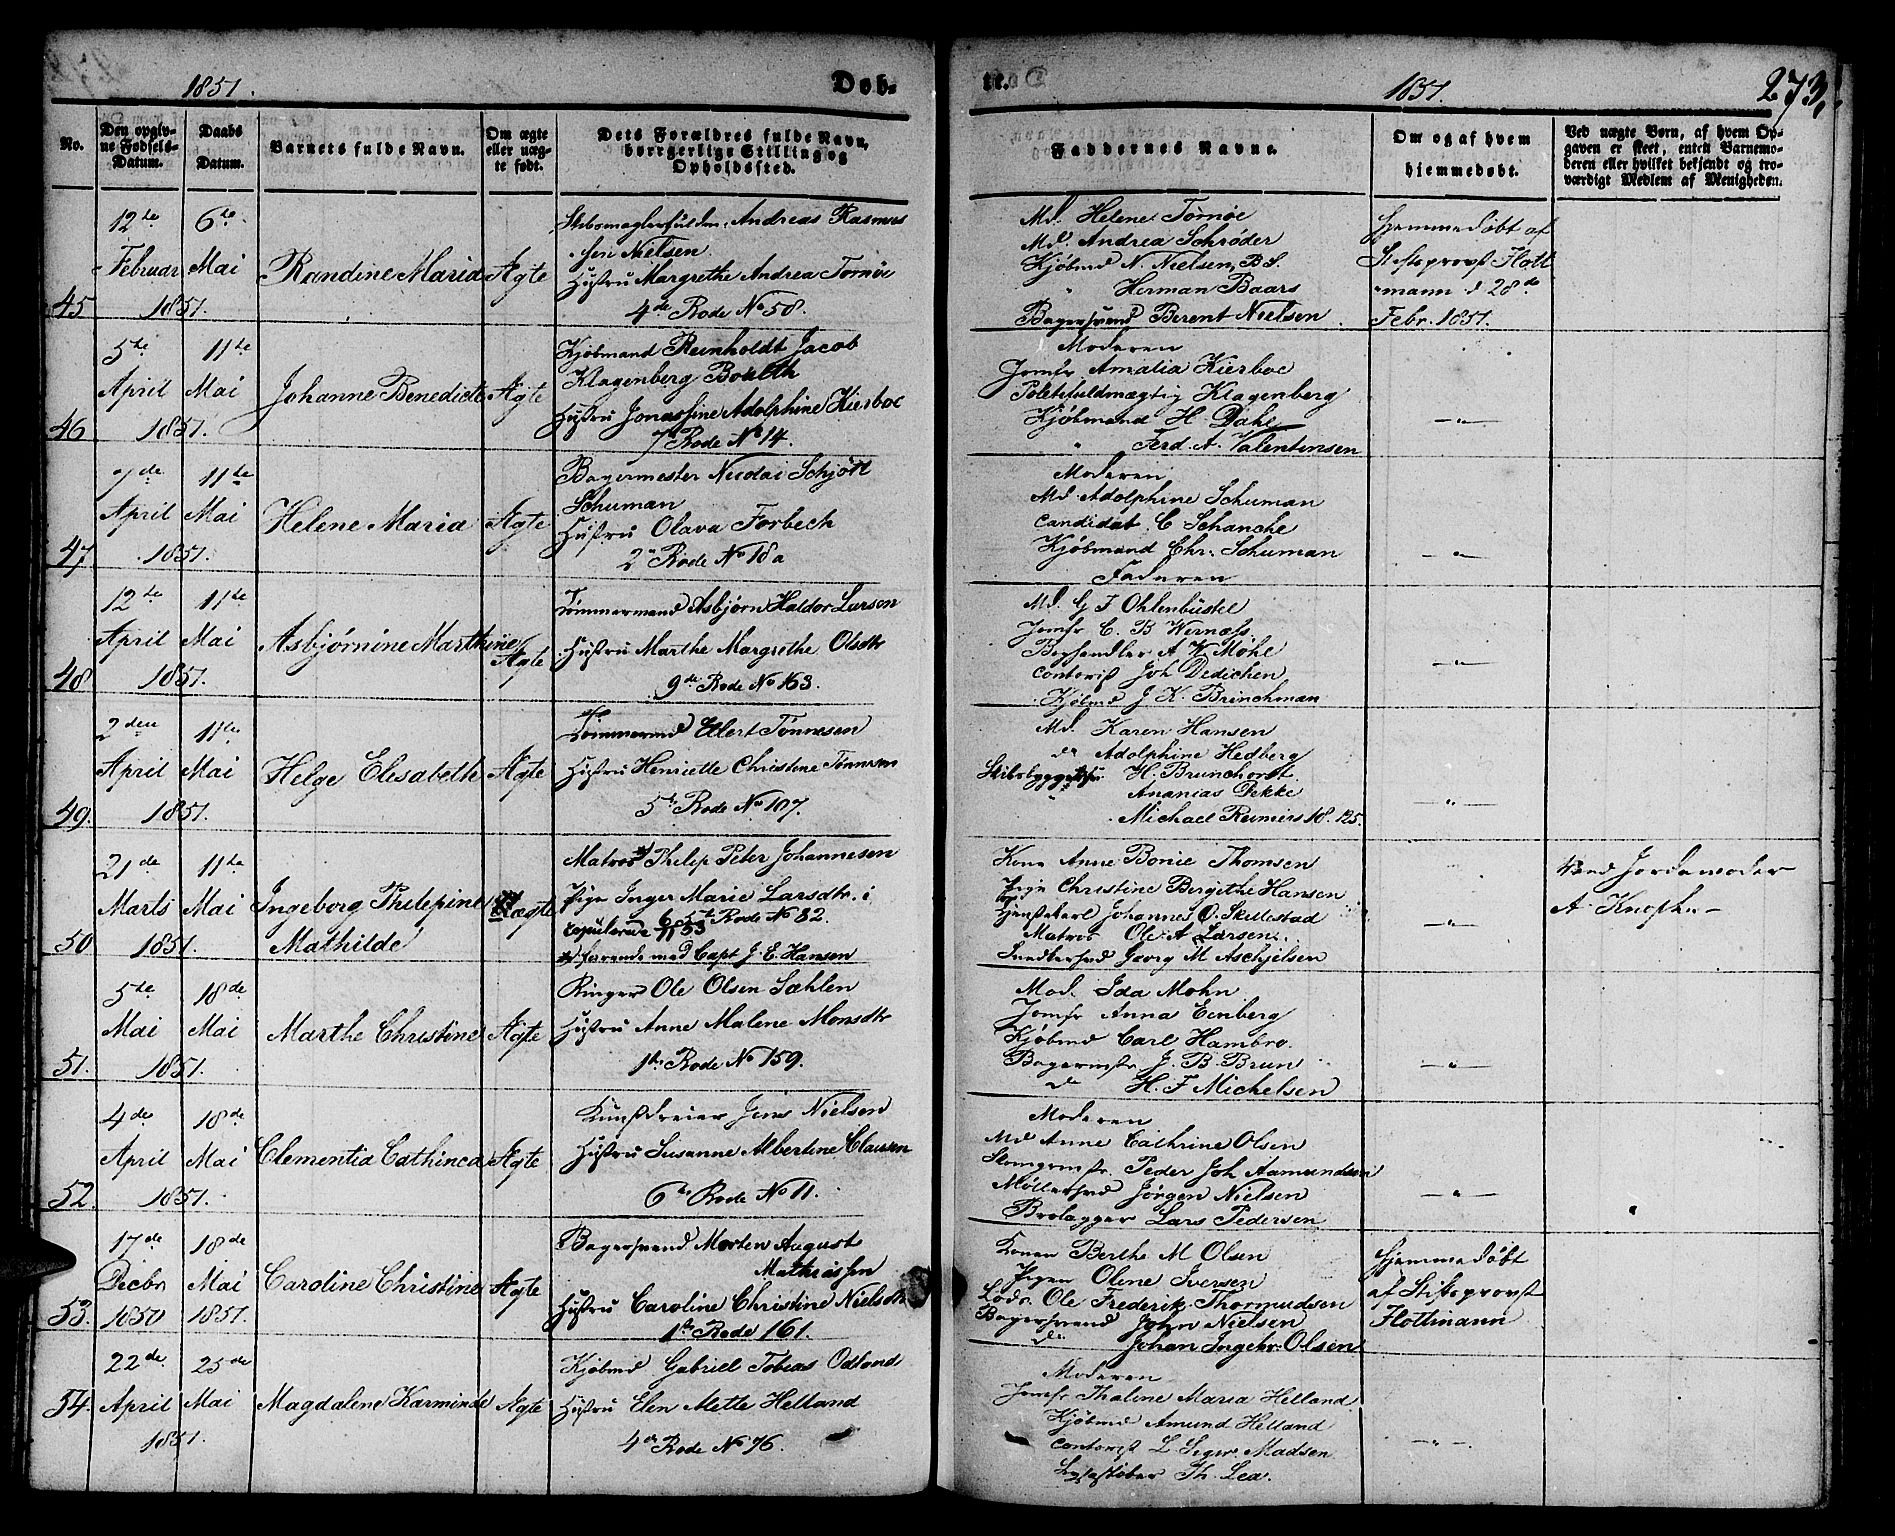 1851.
Døb-
te.
1851.
273.
No.
Den opgiv-
ne Fødsels-
Datum.
Daabs
Datum.
Barnets fulde Navn.
Om ægte
eller uæg-
te født.
Dets Forældres fulde Navn,
borgerlige Stilling og
Opholdssted.
Faddernes Navne.
Om og af hvem
hjemmedøbt.
Ved uægte Børn, af hvem Op-
gaven er skeet, enten Barnemo-
deren eller hvilket bekjendt og tro-
værdigt Medlem af Menigheden.
45
12te
Februar
1851.
6te
Mai
Randine Maria
Ægte
Andreas Rasmus
sen Nielsen
Hustru Margrethe Andrea Tornøe
4de Rode No 58.
Md. Helene Tornøe
Md. Andrea Schrøder
Kjøbmd N. Nielsen, B S.
" Herman Baars
Bagersvend Berent Nielsen
Hjemmedøbt af
Stiftsprovst Flott
mann d 28de
Febr. 1851.
46
5te
April
1851.
11te
Mai
Johanne Benedicte
Ægte
Kjøbmand Reinholdt Jacob
Klagenberg Boalth
Hustru Jonassine Adolphine Kierboe
7de Rode No 14.
Moderen
Jomfr Amalia Kierboe
Politifuldmægtig Klagenberg
Kjøbmand H. Dahl
" Ferd. A. Valentinsen
— " —
47
7de
April
1851.
11te
Mai
Helene Maria
Ægte
Bagermester Nicolai Schjøtt
Schuman
Hustru Olava Forbech
2den Rode No 18 a
Moderen
Md. Adolphine Schuman
Candidat C Schanche
Kjøbmand Chr. Schuman
Faderen
— " —
48
12te
April
1851.
11te
Mai
Asbjørnine Marthine
Ægte
Tømmermand Asbjørn Haldor Larsen
Hustru Marthe Margrethe Olsdtr
9de Rode No 163.
Md. G J Ohlenbustel
Jomfr C. B Wernæss
Boghandler A W Møhl
Contorist Joh Dedichen
Kjøbmd J. K. Brinchman
— " —
49.
2den
April
1851.
11te
Mai
Helge Elisabeth
Ægte
Tømmermd Elert Tønnesen
Hustru Henriette Christine Tønnesen
5te Rode No 107.
Md. Karen Hansen
do Adolphine Hedberg
Skibsbygger H. Brunchorst
" Ananias Dekke
Michael Reimers 18. 125.
— " —
50
21de
Marts
1851.
11te
Mai
Ingeborg Philipine
Mathilde
Uægte
Matros Philip Peter Johannesen
Pige Inger Marie Larsdtr. i
5te Rode No 82.
farende med Capt J. E. Hansen
Kone Anne Bonie Thomsen
Pige Christine Bergithe Hansen
Tjenstekarl Johannes O. Skillestad
Matros Ole A Larsen.
Georg M Aschjelsen
— " —
Ved Jordemoder
A. Knoph
51.
5te
Mai
1851.
18de
Mai
Marthe Christine
Ægte
Ringer Ole Olsen Sæhlen
Hustru Anne Malene Monsdtr
1te Rode No 159.
Mad. Ida Mohn
Jomfr Anna Eenberg
Kjøbmd Carl Hambro.
Bagermstr J. B. Brun
do H. F Michelsen
— " —
52.
4de
April
1851.
18de
Mai
Clementia Cathinca
Ægte
Kunstdreier Jens Nielsen
Hustru Susanne Albertine Clausen
6te Rode No 11.
Moderen
Md Anne Cathrine Olsen
Peder Joh Aamundsen
Møllersvd Jørgen Nielsen
Brolægger Lars Pedersen
— " —
53.
17de
Decbr
1850
18de
Mai
1851.
Caroline Christine
Ægte
Bagersvend Morten August
Mathiassen
Hustru Caroline Christine Nielsdtr
1te Rode 161.
Konen Berthe M Olsen
Pigen Olene Iversen
Lods. Ole Frederik Thormudsen
Bagersvend John Nielsen
do Johan Ingebr. Olsen
Hjemmedøbt
af Stiftsprovst
Flottmann
54.
22de
April
1851.
25de
Mai
Magdalene Karminde
Ægte
Kjøbmd Gabriel Tobias Odland
Hustru Elen Mette Helland
4de Rode No 76.
Moderen
Jomfr Thaline Maria Helland
Kjøbmd Amund Helland
Contorist L. Segev Madsen
Lysestøber Th. Lea.
— " —